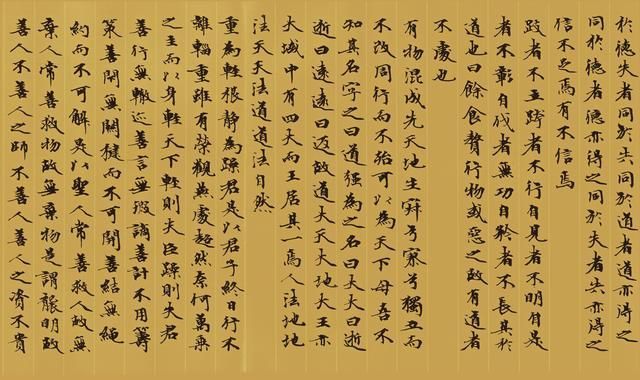 於德失者同於失同於道者道亦得之
同於德者德亦得之同於失者失亦得之
信不足焉有不信焉
跂者不立跨者不行自見者不明自是
者不彰自伐者無功自矜者不長其於
道也曰餘食贅行物或惡之故有道者
不處也
有物混成先天地生寂兮寥兮獨立而
不改周行而不殆可以為天下母吾不
知其名字之曰道強為之名曰大大曰逝
逝曰遠遠曰返故道大天大地大王亦
大域中有四大而王居其一焉人法地地
法天天法道道法自然
重為輕根靜為躁君是以君子終日行不
離輜重雖有榮觀燕處超然奈何萬乘
之主而以身輕天下輕則失臣躁則失君
善行無轍迹善言無瑕謫善計不用籌
策善閉無關楗而不可開善結無繩
約而不可解是以聖人常善救人故無
棄人常善救物故無棄物是謂襲明故
善人不善人之師不善人善人之資不貴